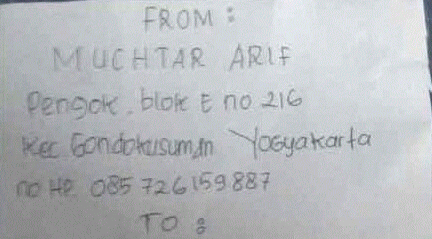 FROM :
MUCHTAR ARIF
Pengok. blok E no 216
Kec Gondokusuman Yogyakarta
no HP 085 726 159 887
TO :